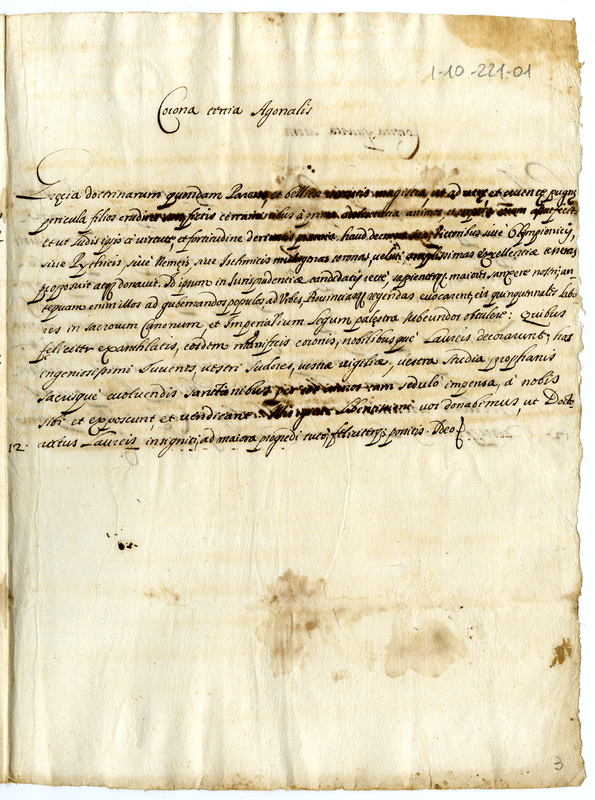 1-10-221-01
Corona tertia Agonalis
Gręcia doctrinarum quondam Parens, et bellicę virtutis magistra, ut ad veræ et cruentę pugnę
pericula filios erudiret
et ut ludis ipsis a virtute, et fortitudine haud Victoribus sive Olympionicis,
sive Pythicis, sive Nemeis, sive Isthmicis coronas, veluti amplissimas excellentiæ tesseras
proposuit atq; donavit. Id ipsum in Iurisprudentiæ candidatis recte, sapienterq; maiores nostri, an-
tequam enim illos ad gubernandos populos, ad Urbes, Provinciasq; regendas evocarent, eis quinquennales labo
res in Sacrorum Canonum, et Imperialium Legum palęstra subeundos obtulere: Quibus
feliciter exantlatis, eosdem coronis, nobilibusque Laureis decorarunt, has
ingeniosissimi Iuvenes, vestri sudores, vestræ vigiliæ, vestra studia prophanis
sacrisque evoluendis per tam sedulo impensa, à nobis
sibi et exposcunt, et vendicant. vos donabimus, ut Docto-
12. insigniti, ad maiora progredi tuto, feliciterq; possitis. Dixi
3